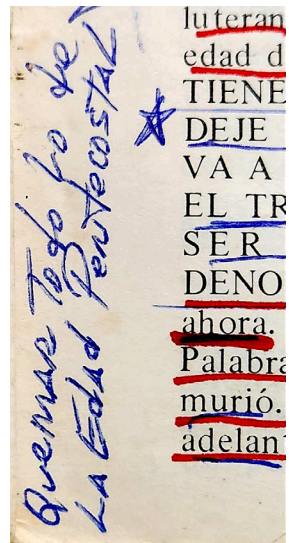 Quemar Todo lo de
La Edad Pentecostal
luteran
edad d
TIENE
DEJE
VA A
EL TR
SER
DENO
ahora.
Palabra
murió.
adelant